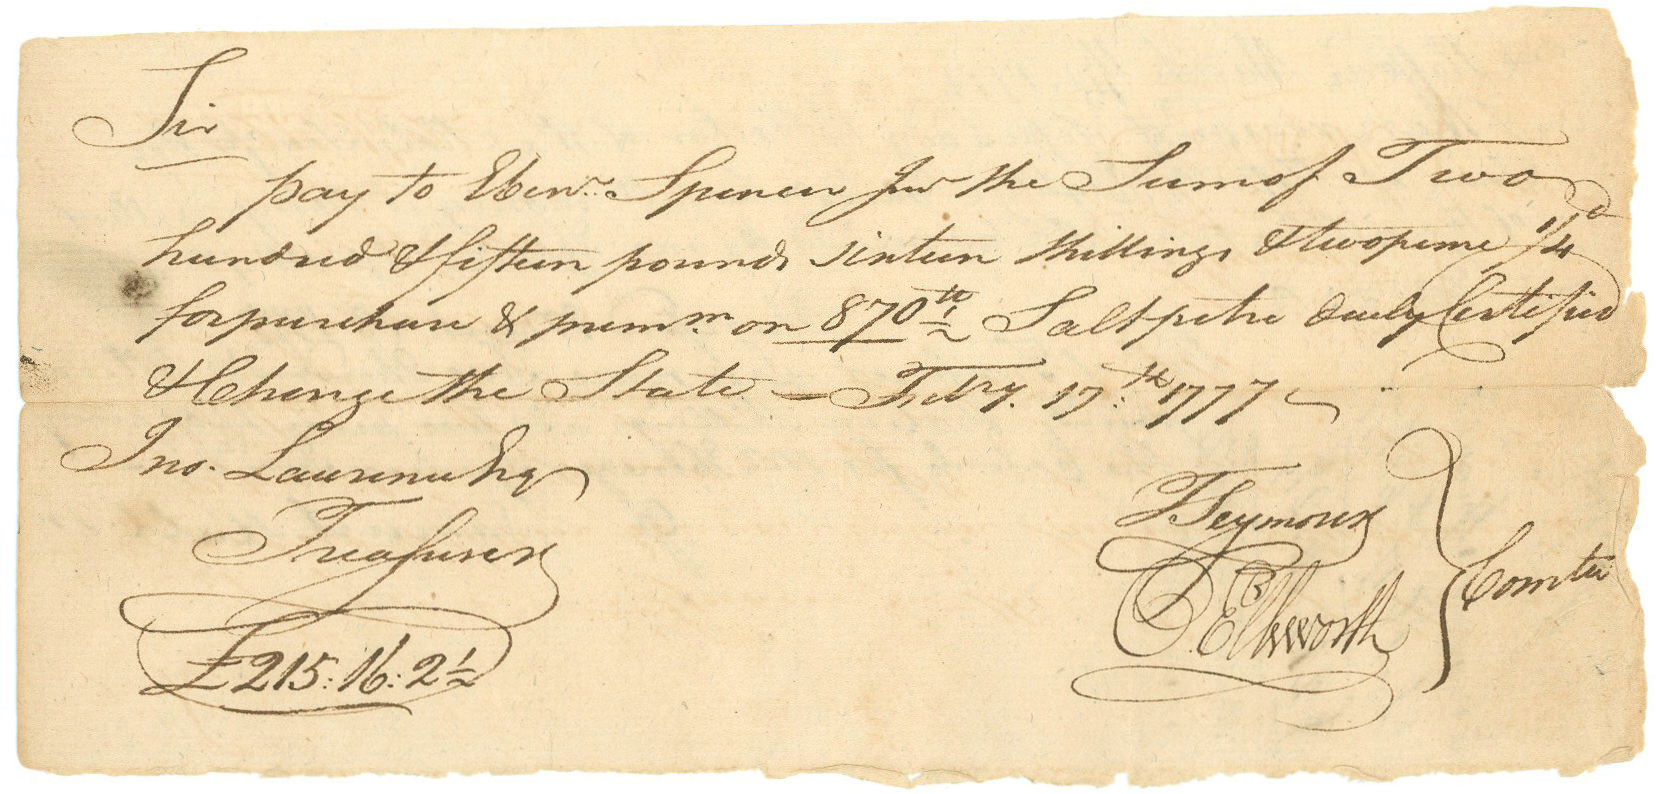 Sir
pay to Ebenr. Spencer Jur the Sum of Two
hundred & fifteen pounds sixteen shillings & twopence 1/4d
for purchase & premm. on 870 1/2 lb Saltpetre duely Certified
& Charge the State — Febry. 17th. 1777
Jno. Lawrence Esq
Treasurer
£215:16:2 1/2
T Seymour
O. Ellsworth
Comtee